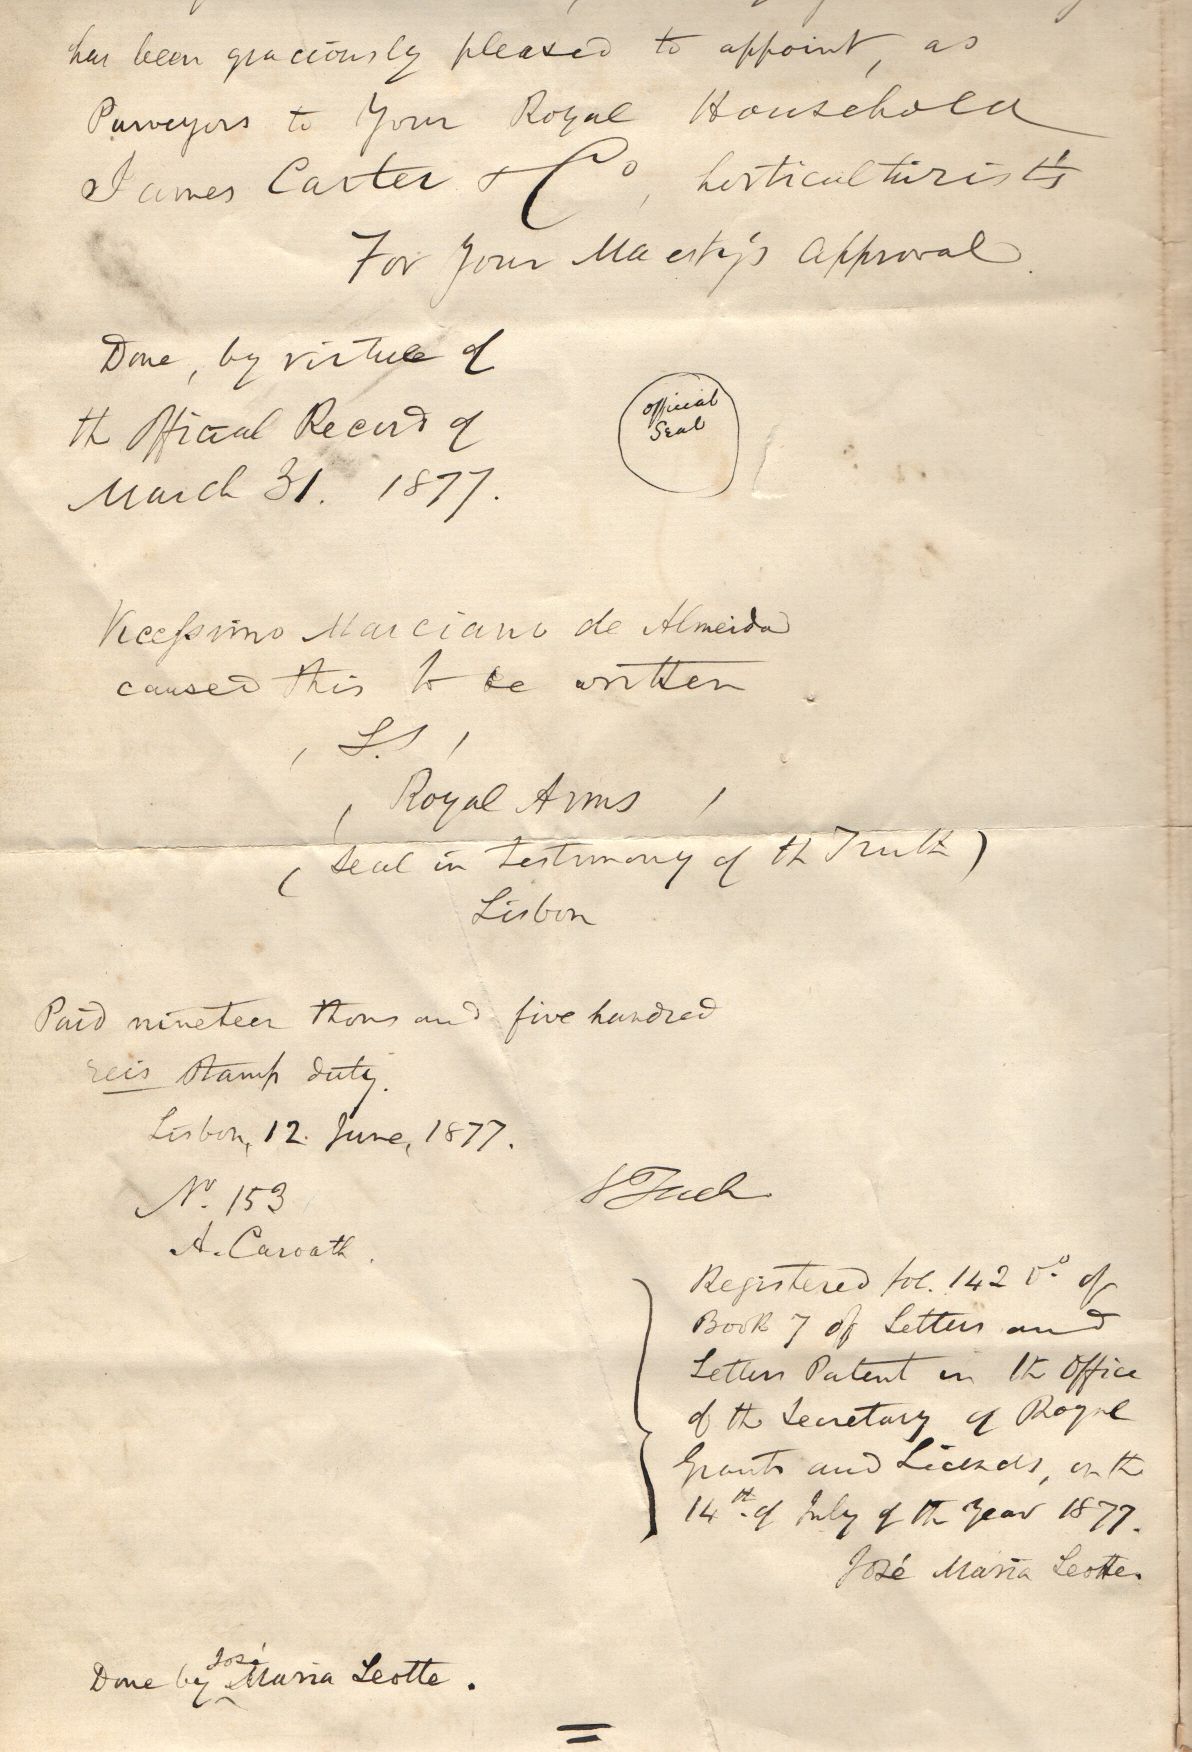 has been graciously pleased to appoint, as
Purveyors to Your Royal Household
James Carter & Co, horticulturists
For Your Maesty's approval.
Done, by virtue of
the Official Record of
March 31. 1877.
Official
Seal
Marciano de Almeida
caused this to be written
( L.S )
( Royal Arms )
( Seal in testimony of the Truth )
Lisbon
Paid nineteen thousand five hundred
reis stamp duty.
Lisbon, 12. June, 1877.
No. 153
A.
Registered fol. 142 Vo. of
Book 7 of Letters and
Letters Patent in the Office
of the Secretary of Royal
Grants and Licenses, on the
14th. of July of the Year 1877.
José Maria Leotte.
Done by José Maria Leotte.